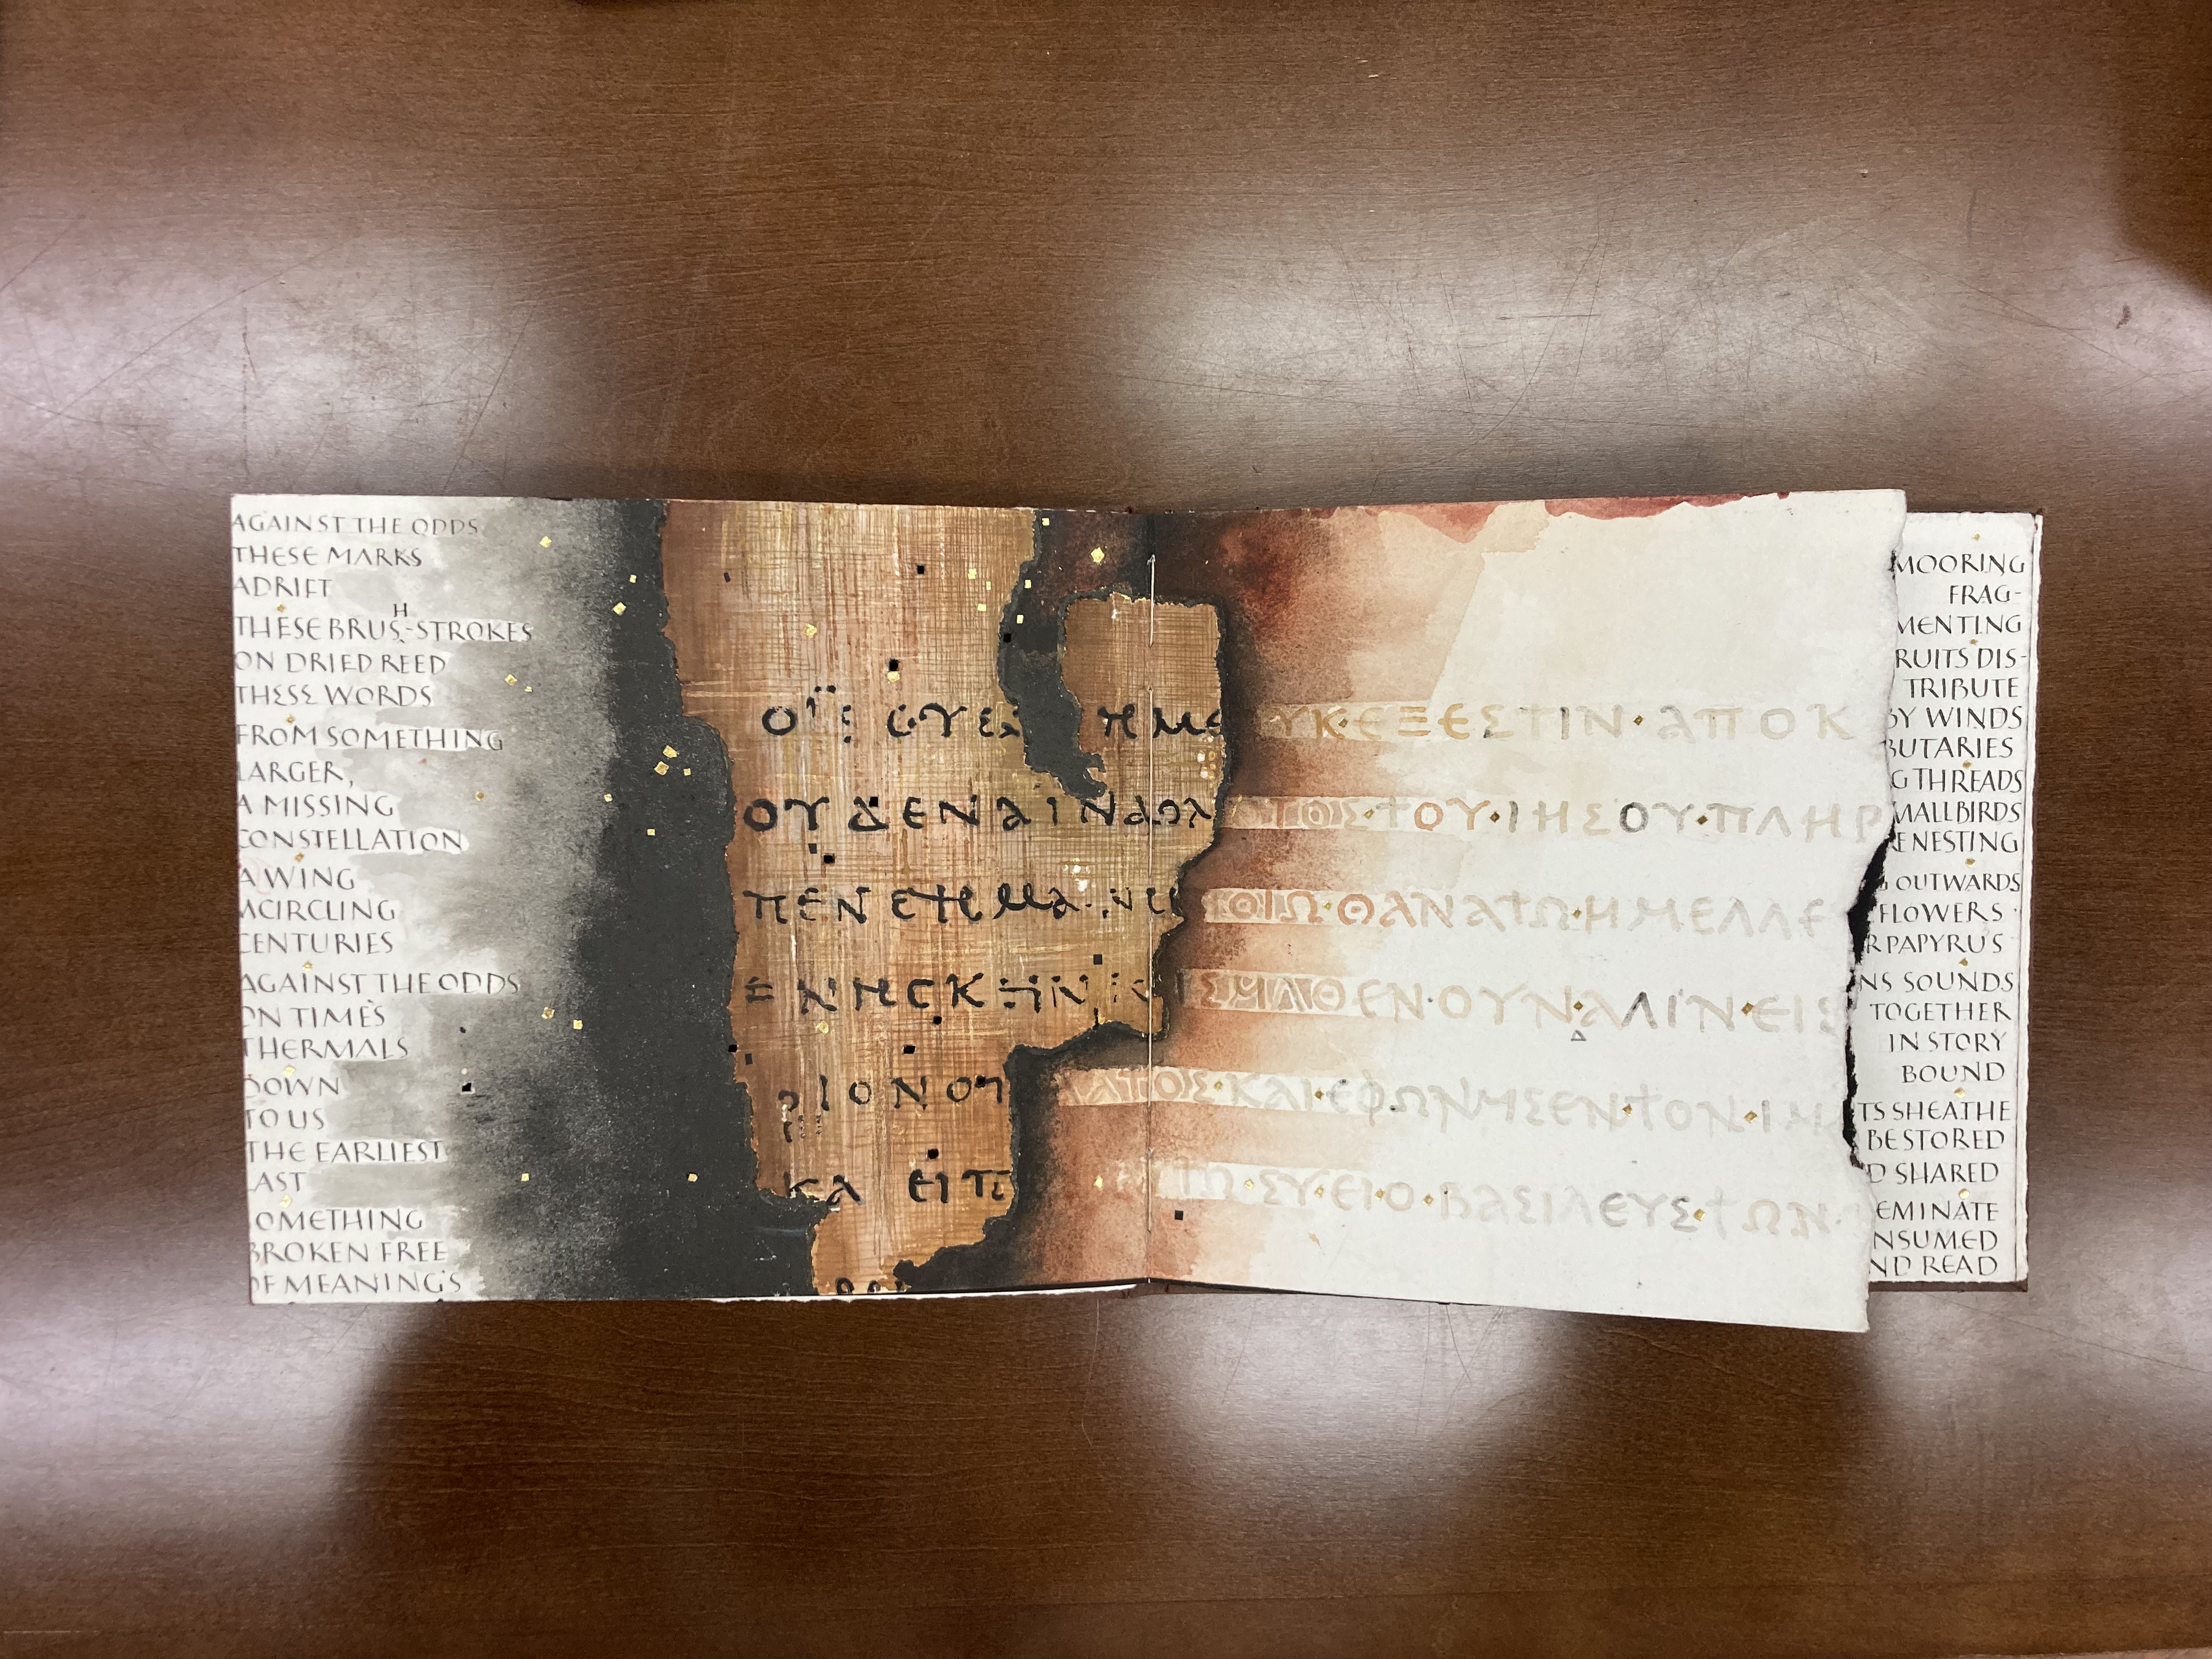 AGAINST THE ODDS
THESE MARKS
ADRIFT
THESE BRUSH-STROKES
ON DRIED REED
THESE WORDS
FROM SOMETHING
LARGER,
A MISSING
CONSTELLATION
A WING
ACIRCLING
CENTURIES
AGAINST THE ODDS
ON TIME'S
THERMALS
DOWN
TO US
THE EARLIEST
LAST
SOMETHING
BROKEN FREE
OF MEANING'S
ΗΜΕ ΥΚ·ΕΞΕΣΤΙΝ·ΑΠΟΚ
ΟΥΔΕΝΑ ΙΝΑ ΟΛ ΓΟΣ·ΤΟΥ·ΙΗΣΟΥ·ΠΛΗΡ
ΠΕΝ ΟΙΩ·ΘΑΝΑΤΩ·ΗΜΕΛΛΕ
ΙΣΗΛΘΕΝ·ΟΥΝ·ΑΛΙΝ·ΕΙΣ
ΡΙΟΝ ΟΠ ΛΑΤΟΣ·ΚΑΙ·ΕΦΩΝΗΣΕΝ·ΤΟΝ·ΙΗ
ΚΑ ΕΙΠ ΣΥ·ΕΙ·Ο·ΒΑΣΙΛΕΥΣ·ΤΩΝ·
MOORING
FRAG-
MENTING
RUITS DIS-
TRIBUTE
BY WINDS
BUTARIES
G THREADS
MALL BIRDS
ENESTING
OUTWARDS
FLOWERS
R PAPYRUS
NS SOUNDS
TOGETHER
IN STORY
BOUND
TS SHEATHE
BESTORED
D SHARED
EMINATE
NSUMED
ND READ